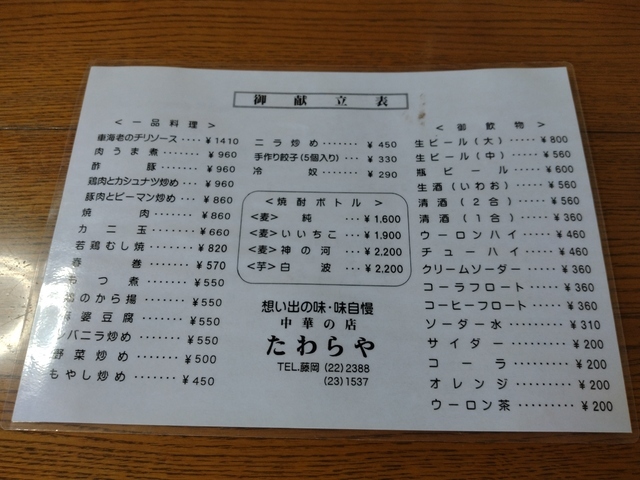 御献立表
＜一品料理＞
車海老のチリソース‥‥￥1410
肉うま煮‥‥‥￥960
酢豚‥‥‥￥960
鶏肉とカシュナツ炒め‥‥￥960
豚肉とピーマン炒め‥‥￥860
焼肉‥‥‥￥860
カニ玉‥‥‥￥660
若鶏むし焼‥‥‥￥820
春巻‥‥‥￥570
もつ煮‥‥‥￥550
鶏のから揚‥‥‥￥550
麻婆豆腐‥‥‥￥550
レバニラ炒め‥‥‥￥550
野菜炒め‥‥‥￥500
もやし炒め‥‥‥￥450
ニラ炒め‥‥‥￥450
手作り餃子(5個入り)‥‥￥330
冷奴‥‥‥￥290
＜焼酎ボトル＞
<麦>純‥‥￥1,600
<麦>いいちこ‥‥￥1,900
<麦>神の河‥‥￥2,200
<芋>白波‥‥￥2,200
想い出の味・味自慢
中華の店
たわらや
TEL.藤岡 (22)2388
(23)1537
＜御飲物＞
生ビール(大)‥‥￥800
生ビール(中)‥‥￥560
瓶ビール‥‥‥￥600
生酒(いわお)‥‥￥560
清酒(2合)‥‥￥560
清酒(1合)‥‥￥360
ウーロンハイ‥‥￥460
チューハイ‥‥￥460
クリームソーダー‥‥￥360
コーラフロート‥‥￥360
コーヒーフロート‥‥￥360
ソーダー水‥‥‥￥310
サイダー‥‥‥￥200
コーラ‥‥‥￥200
オレンジ‥‥‥￥200
ウーロン茶‥‥‥￥200